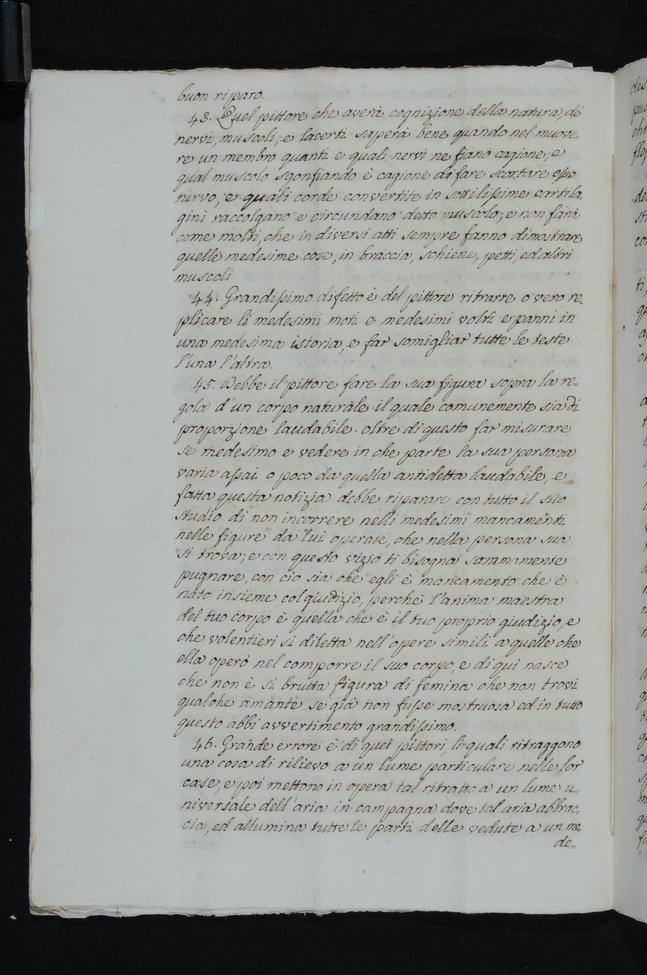 buon riparo.
43. Quel pittore che averà cognizione della natura, di
nervi, muscoli, e lacerti saperà bene quando nel muove
re un membro quanti e quali nervi ne siano cagione, e
qual muscolo sgonfiando è cagione di fare scortare esso
nervo, e quali corde convertite in sottilissime cartila
gini raccolgano e circundano detto muscolo; e non farà
come molti, che in diversi atti sempre fanno dimostrare
quelle medesime cose, in braccia, schiene, petti, ed altri
muscoli
44. Grandissimo difetto è del pittore ritrarre, o vero re
plicare li medesimi moti e medesimi volti e panni in
una medesima istoria, e far somigliar tutte le teste
l'una l'altra.
45. Debbe il pittore fare la sua figura sopra la re-
gola d'un corpo naturale il quale comunemente sia di
proporzione laudabile. oltre di questo far misurare
se medesimo e vedere in che parte la sua persona
varia assai o poco da quella antidetta laudabile, e
fatta questa notizia debbe riparare con tutto il suo
studio di non incorrere nelli medesimi mancamenti
nelle figure da lui operate, che nella persona sua
si trova; e con questo vizio ti bisogna sommamente
pugnare, con ciò sia che egli è mancamento che è
nato insieme col giudizio, perchè l'anima maestra
del tuo corpo è quella che è il tuo proprio giudizio, e
che volentieri si diletta nell'opere simili a quelle che
ella operò nel comporre il suo corpo, e di qui nasce
che non è si brutta figura di femina che non trovi
qualche amante se già non fusse mostruosa ed in tutto
questo abbi avvertimento grandissimo.
46. Grande errore è di quei pittori, li quali ritraggono
una cosa di rilievo a un lume particulare nelle lor
case, e poi mettono in opera tal ritratto a un lume u-
niversale dell'aria in campagna dove tal aria abbrac-
cia, ed allumina tutte le parti delle vedute a un me
de-